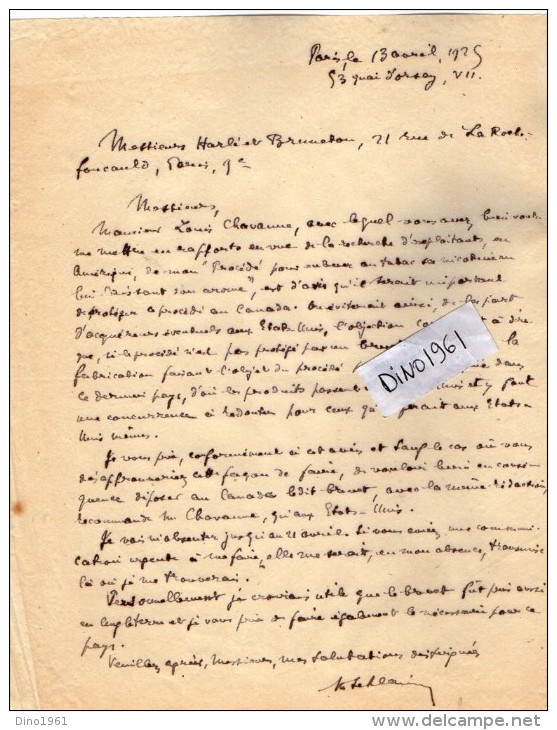 Paris, le 13 avril, 1925
53 quai d'orsay, VII.
Messieurs Harlé et Bruneton, 21 rue de La Roche-
foucauld, Paris, 9e
Messieurs,
Monsieur Louis Chavanne, avec lequel vous avez bien voulu
me mettre en rapports en vue de la recherche d'exploitants, en
Amérique, de mon "Procédé pour enlever au tabac sa nicotine en
lui laissant son arome", est d'avis qu'il serait important
de protéger ce procédé au Canada. On éviterait ainsi, de la part
d'acquéreurs éventuels aux Etats-Unis, l'objection à di-
que, si le procédé n'est pas protégé par un la
fabrication faisant l'objet du procédé dans
ce dernier pays, d'où les produits et y font
une concurrence à redouter pour ceux aux Etats-
Unis mêmes.
Je vous prie, conformément à cet avis et sauf le cas où vous
désapprouveriez cette façon de faire, de vouloir bien en consé-
quence déposer au Canada ledit brevet, avec la même rédaction,
recommande M. Chavanne, qu'aux Etats-Unis.
Je vais m'absenter jusqu'au 21 avril. Si vous aviez une communi-
cation urgente à me faire, elle me serait, en mon absence, transmise
là où je me trouverais.
Personnellement je croirais utile que le brevet fût pris aussi
en Angleterre et je vous prie de faire également le nécessaire pour ce
pays.
Veuillez agréer, Messieurs, mes salutations distinguées
DINO1961
Dino1961
delcampe.net